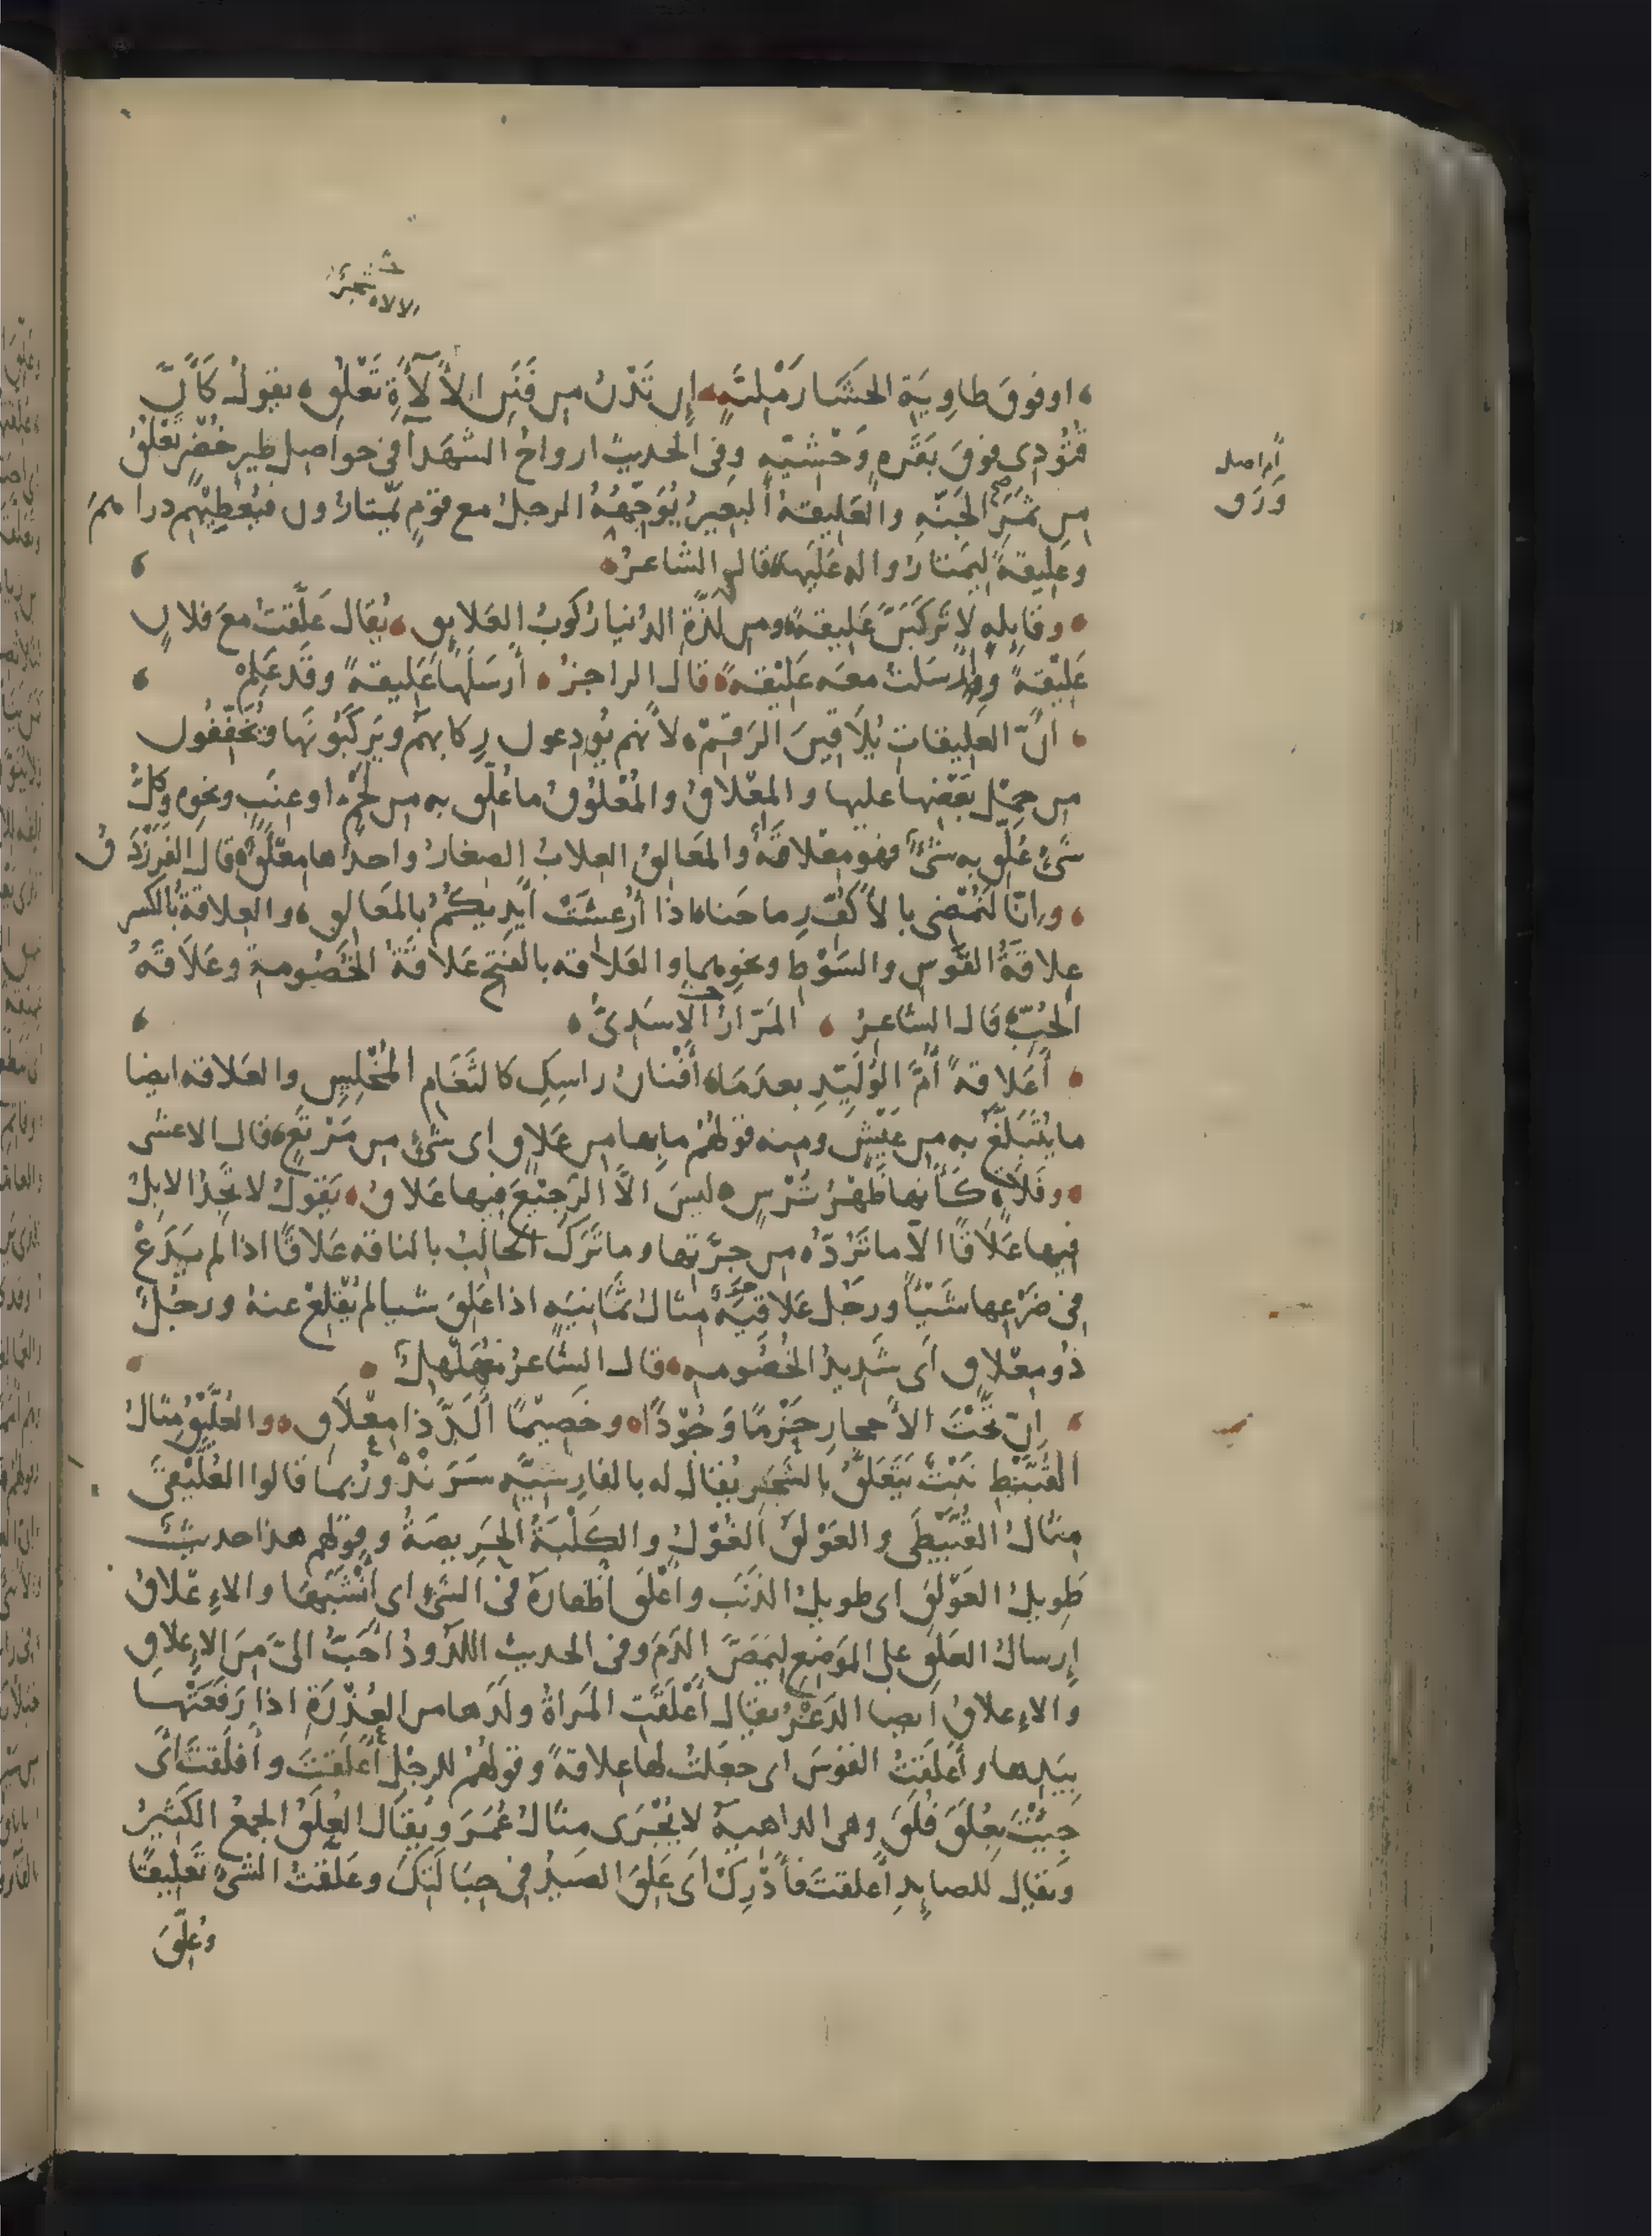 الالاه شجر
او فوق طاوية الحشا رملية ان تدن من فنن الألآءة تعلق يقول كأن
قتودى فوق بقره وحشيه وفى الحديث ارواح الشهدآ فى حواصل طير خضر تعلق
ام اصل
ورق
من ثمر الجنه والعليقه البعير يوجهه الرجل مع قوم يمتارون فيعطيهم دراهم
وعليقة ليمتاروا له عليها قال الشاعر
وقايله لا تركبن عليقة ومن لذة الدنيا ركوب العلايق يقال علقت مع فلان
عليقة وارسلت معه عليقة قال الراجز أرسلها عليقة وقد علم
أن العليقات يلاقين الرقم لأنهم يودعون ركابهم ويركبونها ويخففون
من حمل بعضها عليها والمعلاق والمعلوق ما علق به من لحم او عنب ونحوه وكل
شىء علق به شىء فهو معلاقه والمعالق العلاب الصغار واحدها معلق قال الفرزدق
وانا لتمضى بالأكف رماحنا اذا أرعشت أيديكم بالمعالق والعلاقة بالكسر
علاقة القوس والسوط ونحوهما والعلاقه بالفتح علاقة الخصومة وعلاقه
الحب قال الشاعر المرار الاسدى
أعلاقة أم الوليد بعدما أفنان راسك كالثغام المخلس والعلاقه ايضا
ما يتبلغ به من عيش ومنه قولهم ما بها من علاق اى شىء من مرتع قال الاعشى
وفلاة كأنها ظهر ترس ليس الا الرجيع فيها علاق يقول لا تجد الابل
فيها علاقا الا ما تردده من جرتها وما ترك الحالب بالناقه علاقا اذا لم يدع
فى ضرعها شيئا ورجل علاقيه مثال ثمانيه اذا علق شيا لم يقلع عنه ورجل
ذو معلاق اى شديد الخصومه قال الشاعر مهلهل
ان تحت الأحجار حزما وجودا وخصيما ألد ذا معلاق والعليق مثال
القبيط نبت يتعلق بالشجر يقال له بالفارسيه سرند وربما قالوا العليقى
مثال القبيطى والعولق الغول والكلبة الحريصة وقولهم هذا حديث
طويل العولق اى طويل الذنب واعلق أظفاره فى الشىء اى أنشبها والاعلاق
إرسال العلق على الموضع ليمص الدم وفى الحديث اللدود أحب الى من الاعلاق
والاعلاق ايضا الدغر يقال أعلقت المراة ولدها من العذرة اذا رفعتها
بيدها وأعلقت القوس اى جعلت لها علاقة وقولهم للرجل أعلقت وأفلقت اى
جيت بعلق فلق وهى الداهية لا يجرى مثال عمر ويقال العلق الجمع الكثير
ويقال للصايد أعلقت فأدرك اى علق الصيد فى حبالتك وعلقت الشىء تعليقا
وعلق